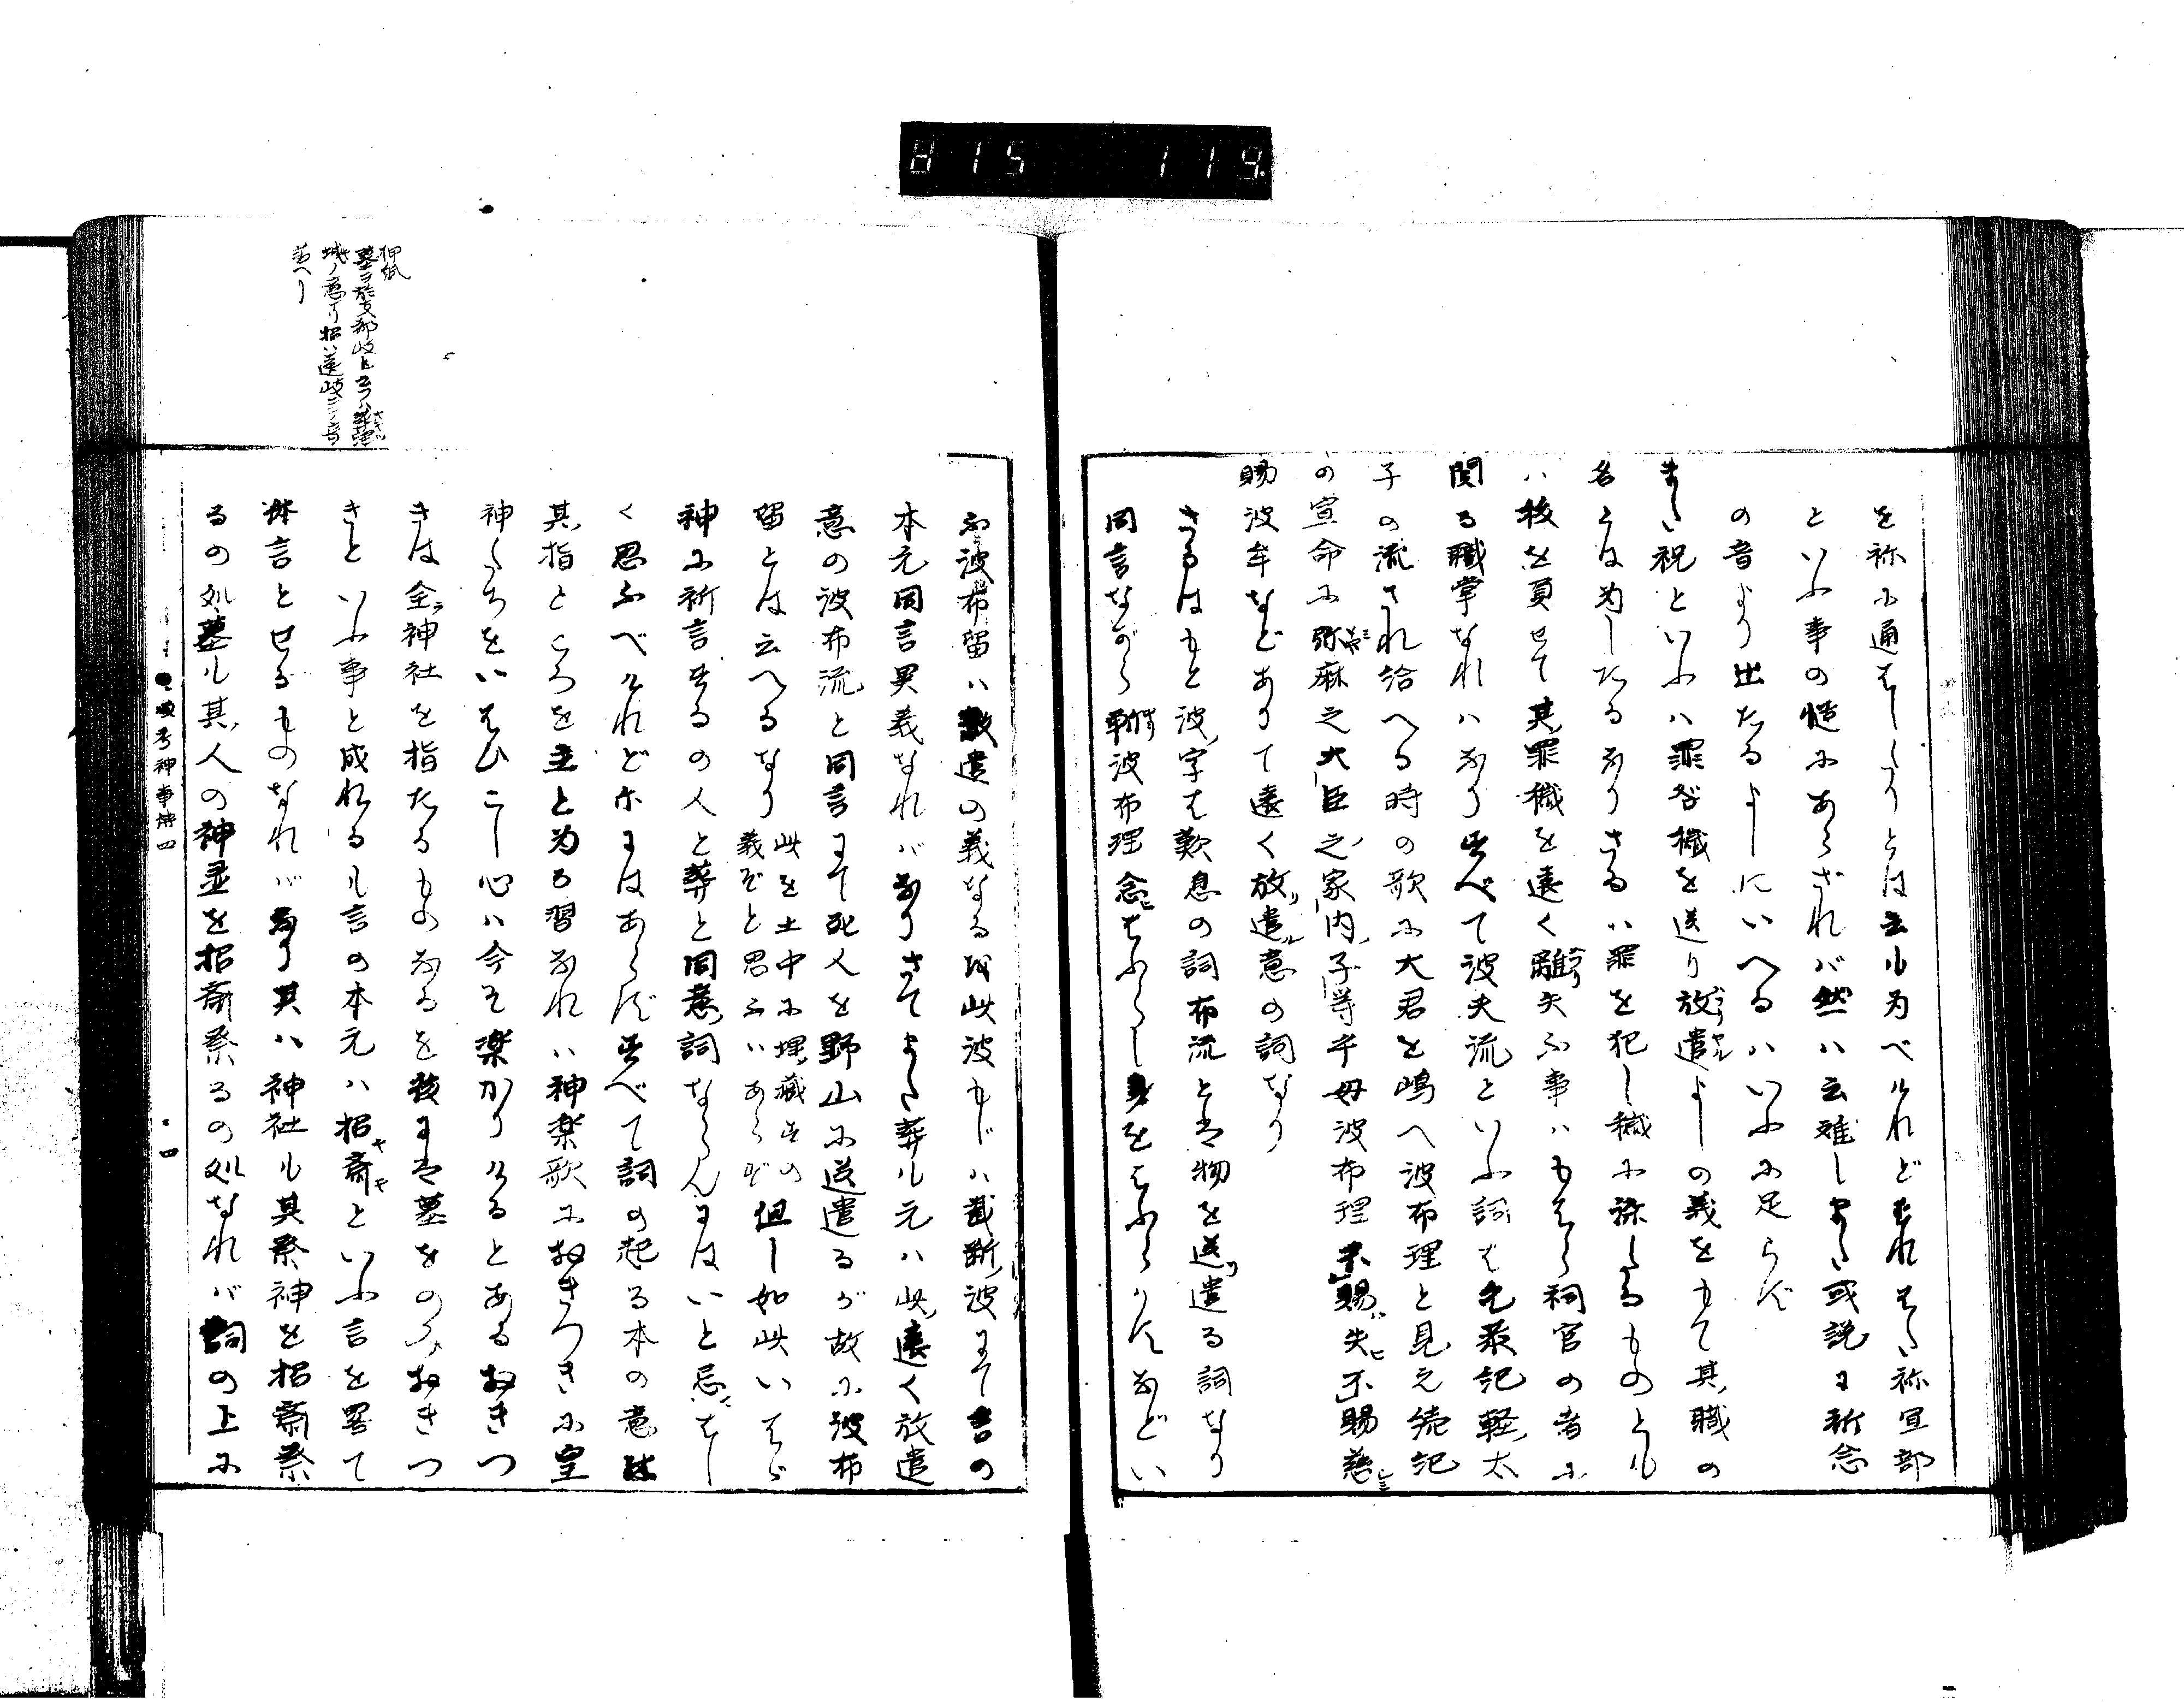 815 119
を祢尓通はしたりとは云ル为べけれどそれはた祢宜部
といふ事の慥尓あらざれバ然ハ云難しまた或説に祈念
の音より出たるよしにいへるハいふ尓足らず
また祝といふハ罪咎穢を送り放遣よしの義をもて其職の
名とは为したるなりさるハ罪を犯し穢尓染たるものとル
ハ祓を負せて其罪穢を遠く離失ふ事ハもはら祠官の者尓
関る職掌なれハなりすべて波夫流といふ詞は允恭記軽太
子の流され給へる時の歌尓大君を嶋へ波布理と見え続記
の宣命尓弥麻之大臣之家内子等乎母波布理不賜失不賜慈
賜波牟などありて遠く放遣意の詞なり
さるはもと波字は歎息の詞布流とは物を送遣る詞なり
同言ながら 波布理念はふらし身をはふらかすなどい
ふ波布留ハ散遣の義なる或此波もじハ截断波にて言の
本元同言異義なれバなりさてまた葬ル元ハ此遠く放遣
意の波布流と同言にて死人を野山尓送遣るが故尓波布
留とは云へるなり 此を土中尓埋蔵すの
義ぞと思ふハあらず 但し如此いはゞ
神尓祈言するの人と葬と同意詞ならんにはいと忌はし
く思ふべけれどホにはあらずすべて詞の起る本の意は
其指ところを主と为る習なれハ神楽歌尓おきつきに皇
神たちをいはひこし心ハ今そ楽かりけるとあるおきつ
きは全神社を指たるものなるを後には墓をのみおきつ
きといふ事と成れるル言の本元ハ招斎といふ言を署て
体言とせるものなれバなり其ハ神社ル其祭神を招斎祭
るの処墓ル其人の神霊を招斎祭るの処なれバ詞の上尓
神事傳四
四
押紙
墓ヲ於支都岐ト云フハ
城ノ意ナリ招ハ遠岐ニテ音
違ヘリ